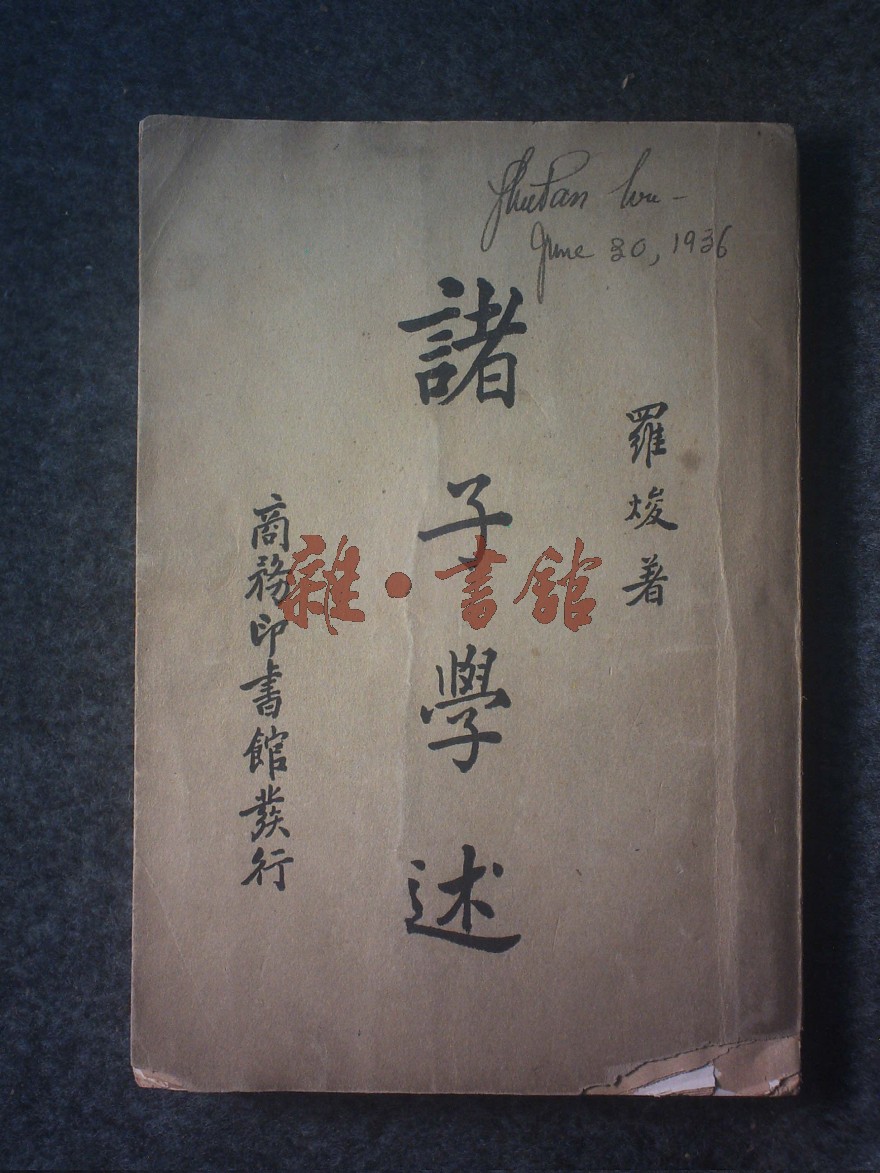 June 30, 1936
羅焌著
諸子學述
商務印書館發行
雜·書館